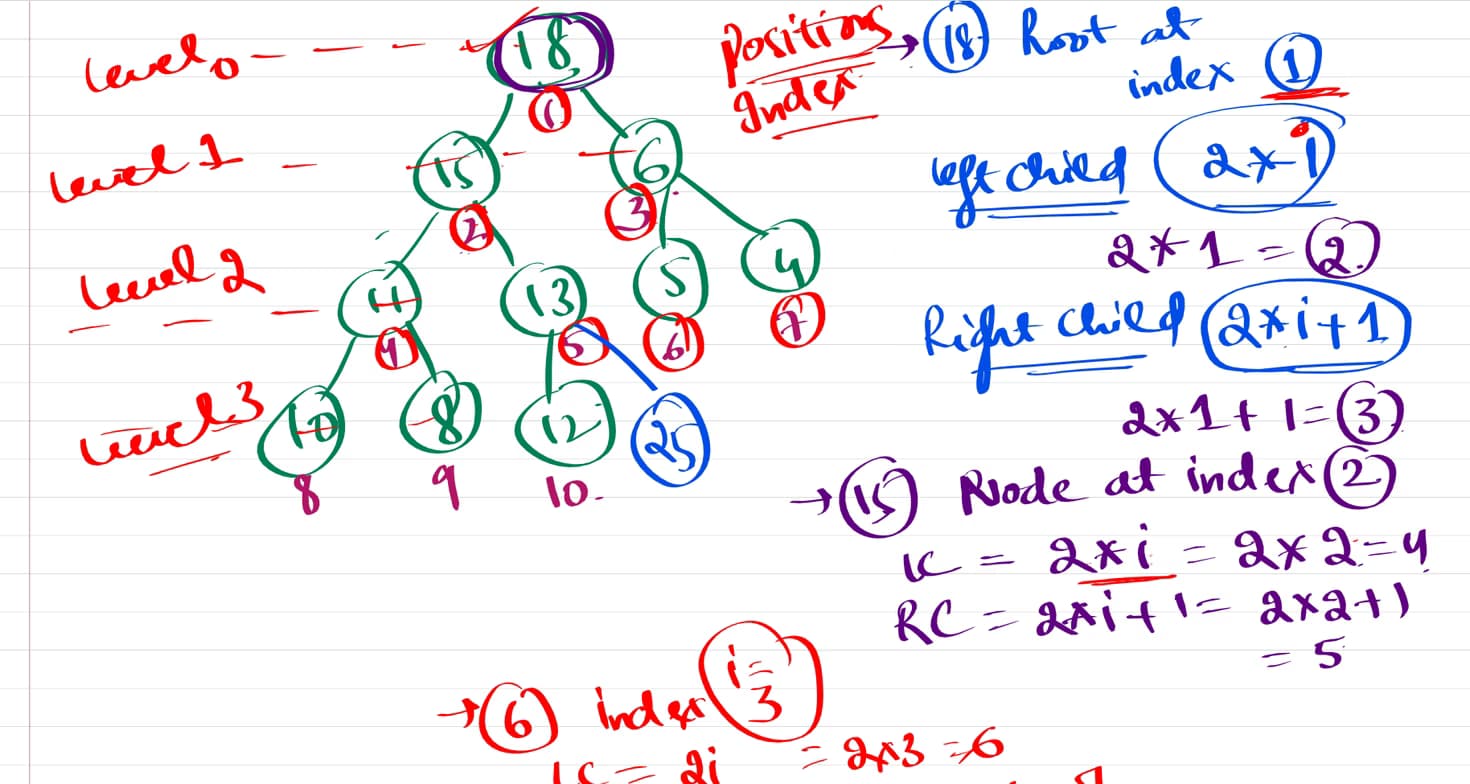 Level 0
18
1
Level 1
15
6
2
3
Level 2
11
13
5
4
4
5
6
7
Level 3
10
8
12
25
8
9
10.
Positions
Index
→ 18 Root at
index 1
left child 2*i
2*1 = 2
Right child 2*i+1
2*1+1=3
→ 15 Node at index 2
LC = 2*i = 2×2=4
RC = 2*i+1= 2×2+1
= 5
→ 6 index i=3
LC = 2i = 2*3 =6